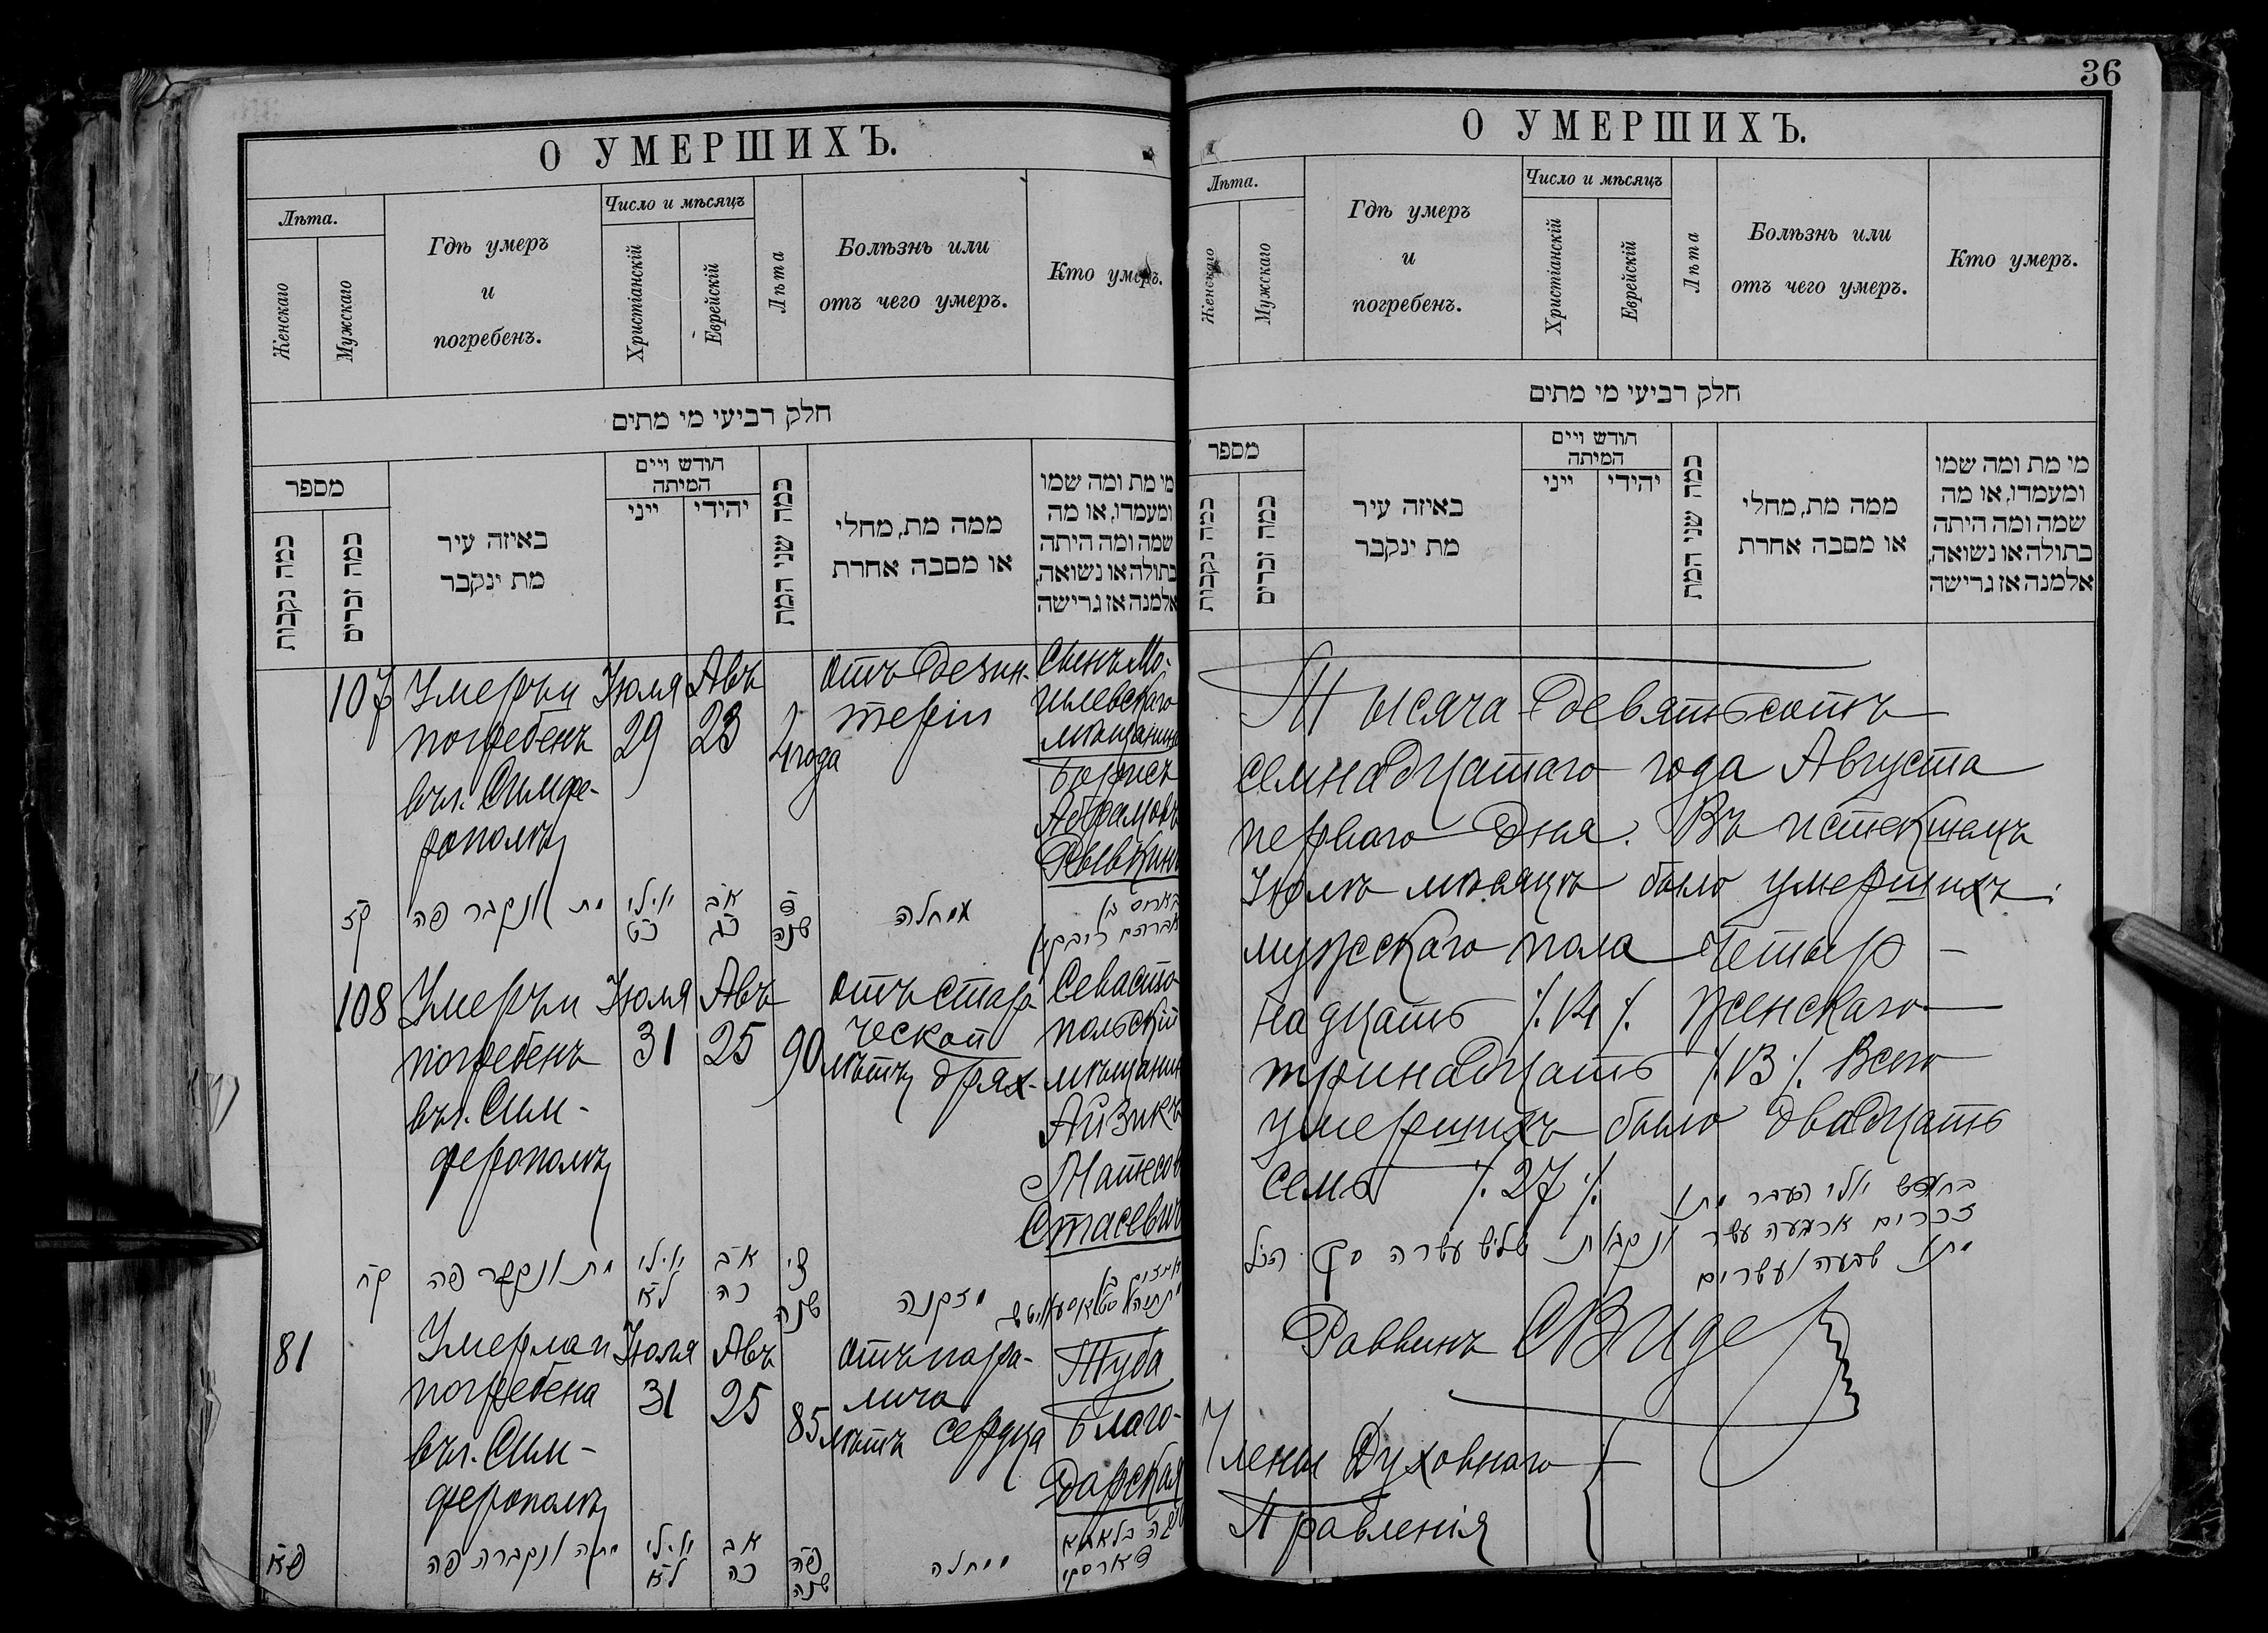 О УМЕРШИХЪ.
Лѣта.
Женскаго
Мужскаго
Гдѣ умеръ
и
погребенъ.
Число и мѣсяцъ
Христіанскій
Еврейскій
Лѣта
Болѣзнь или
отъ чего умеръ.
Кто умеръ.
חלק רביעי מי מתים
מספר
כמה נקבות
כמה זכרים
באיזה עיר
מת ינקבר
חודש ויים
המיתה
ייני
יהודי
כמה שני המת
ממה מת, מחלי
או מסבה אחרת
מי מת ומה שמו
ומעמדו, או מה
שמה ומה היתה
בתולה או נשואה,
אלמנה או גרישה
107
Умеръ и
погребенъ
въ г. Симфе-
рополѣ
Іюля
29
Авъ
23
4 года
отъ дезин-
теріи
Сынъ Мо-
гилевскаго
мѣщанина
Борисъ
Абрамовъ
Рывкинъ
קז
מת ונקבר פה
יולי
כט
אב
כג
ד
שנה
מחלה
בארוס בן
אברהם ריבקין
108
Умеръ и
погребенъ
въ г. Сим-
ферополѣ
Іюля
31
Авъ
25
90
лѣтъ
отъ старче-
ской
дрях-
Севасто-
польскій
мѣщанинъ
Айзикъ
Стасевичъ
קח
מת ונקבר פה
יולי
לא
אב
כה
צ
שנה
מזקנה
81
Умерла и
погребена
въ г. Сим-
ферополѣ
Іюля
31
Авъ
25
85
лѣтъ
отъ пара-
лича
сердца
Туба
Благо-
дарская
פא
מתה ונקברה פה
יולי
לא
אב
כה
פה
שנה
מחלה
36
О УМЕРШИХЪ.
Лѣта.
Женскаго
Мужскаго
Гдѣ умеръ
и
погребенъ.
Число и мѣсяцъ
Христіанскій
Еврейскій
Лѣта
Болѣзнь или
отъ чего умеръ.
Кто умеръ.
חלק רביעי מי מתים
מספר
כמה נקבות
כמה זכרים
באיזה עיר
מת ינקבר
חודש ויים
המיתה
ייני
יהודי
כמה שני המת
ממה מת, מחלי
או מסבה אחרת
מי מת ומה שמו
ומעמדו, או מה
שמה ומה היתה
בתולה או נשואה,
אלמנה או גרישה
Тысяча девятьсотъ
семнадцатаго года Августа
перваго дня. Въ истекшемъ
Іюлѣ мѣсяцѣ было умершихъ:
мужскаго пола четыр-
надцать ./.14./. женскаго
тринадцать ./.13./. Всего
умершихъ было двадцать
семь ./.27./.
בחודש יולי העבר מתו
זכרים ארבעה עשר ונקבות שליש עשרה סך הכל
מתו שבעה ועשרים
Раввинъ
Члены Духовнаго
Правленія